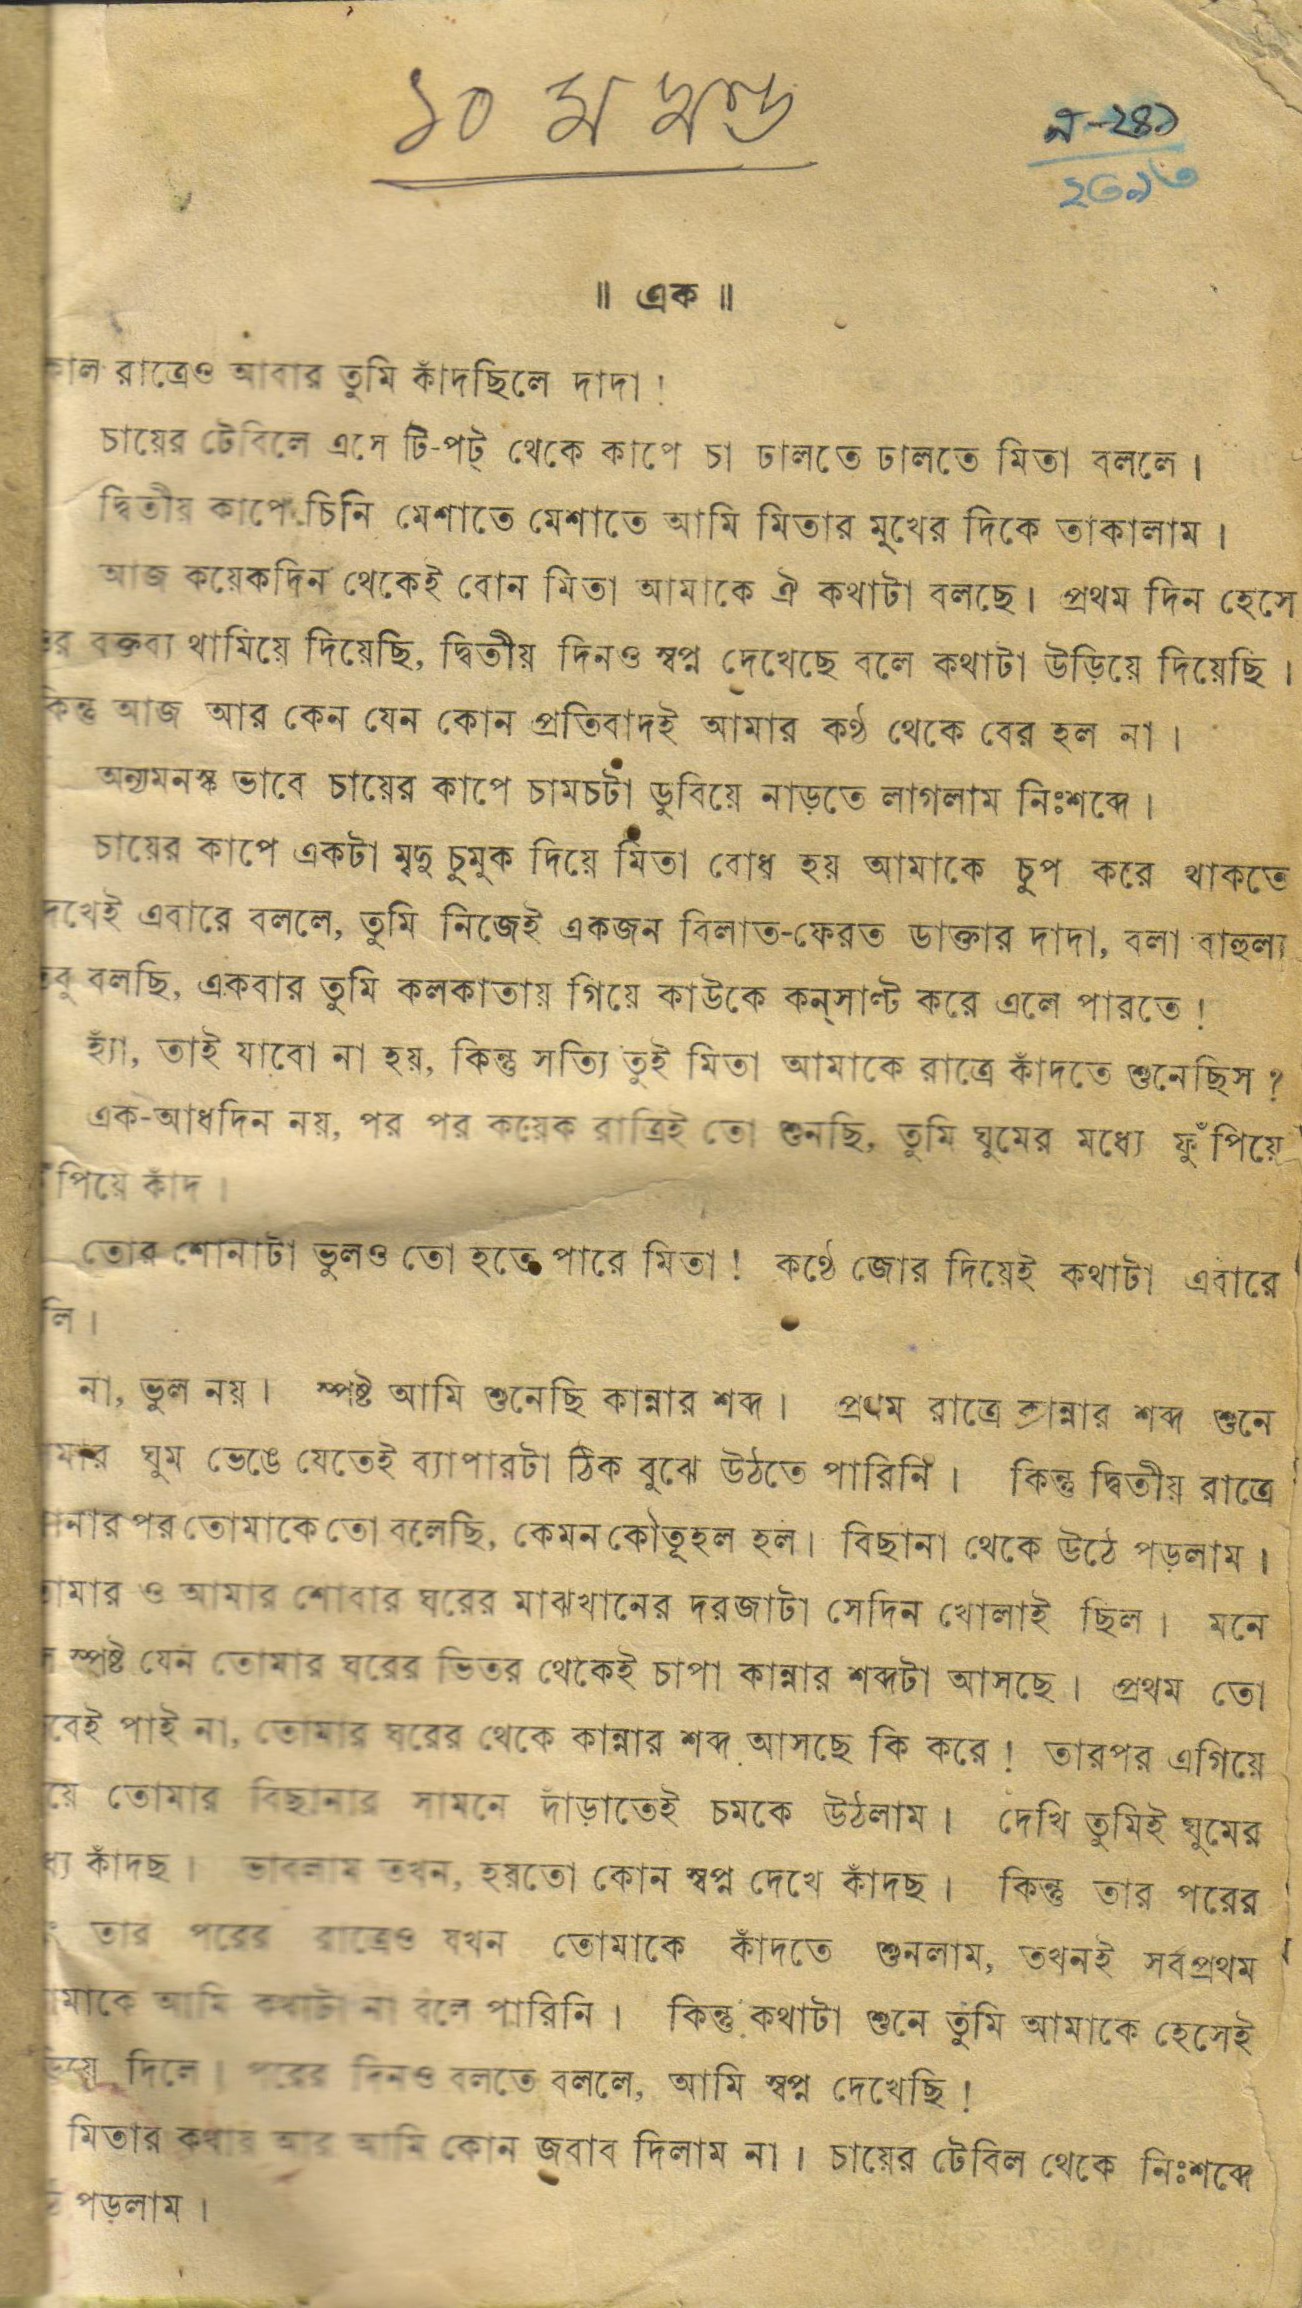 ১০ ম খণ্ড
ন-২৪৯
২৩৯৩
॥ এক ॥
কাল রাত্রেও আবার তুমি কাঁদছিলে দাদা !
চায়ের টেবিলে এসে টি-পট্ থেকে কাপে চা ঢালতে ঢালতে মিতা বললে ।
দ্বিতীয় কাপে চিনি মেশাতে মেশাতে আমি মিতার মুখের দিকে তাকালাম ।
আজ কয়েকদিন থেকেই বোন মিতা আমাকে ঐ কথাটা বলছে । প্রথম দিন হেসে
ওর বক্তব্য থামিয়ে দিয়েছি, দ্বিতীয় দিনও স্বপ্ন দেখেছে বলে কথাটা উড়িয়ে দিয়েছি ।
কিন্তু আজ আর কেন যেন কোন প্রতিবাদই আমার কণ্ঠ থেকে বের হল না ।
অন্যমনস্ক ভাবে চায়ের কাপে চামচটা ডুবিয়ে নাড়তে লাগলাম নিঃশব্দে ।
চায়ের কাপে একটা মৃদু চুমুক দিয়ে মিতা বোধ হয় আমাকে চুপ করে থাকতে
দেখেই এবারে বললে, তুমি নিজেই একজন বিলাত-ফেরত ডাক্তার দাদা, বলা বাহুল্য
তবু বলছি, একবার তুমি কলকাতায় গিয়ে কাউকে কন্‌সাল্ট করে এলে পারতে !
হ্যাঁ, তাই যাবো না হয়, কিন্তু সত্যি তুই মিতা আমাকে রাত্রে কাঁদতে শুনেছিস ?
এক-আধদিন নয়, পর পর কয়েক রাত্রিই তো শুনছি, তুমি ঘুমের মধ্যে ফুঁপিয়ে
পিয়ে কাঁদ ।
তোর শোনাটা ভুলও তো হতে পারে মিতা ! কণ্ঠে জোর দিয়েই কথাটা এবারে
লি ।
না, ভুল নয় । স্পষ্ট আমি শুনেছি কান্নার শব্দ । প্রথম রাত্রে কান্নার শব্দ শুনে
মার ঘুম ভেঙে যেতেই ব্যাপারটা ঠিক বুঝে উঠতে পারিনি । কিন্তু দ্বিতীয় রাত্রে
নার পর তোমাকে তো বলেছি, কেমন কৌতূহল হল । বিছানা থেকে উঠে পড়লাম ।
তামার ও আমার শোবার ঘরের মাঝখানের দরজাটা সেদিন খোলাই ছিল । মনে
ল স্পষ্ট যেন তোমার ঘরের ভিতর থেকেই চাপা কান্নার শব্দটা আসছে । প্রথম তো
বেই পাই না, তোমার ঘরের থেকে কান্নার শব্দ আসছে কি করে ! তারপর এগিয়ে
য়ে তোমার বিছানার সামনে দাঁড়াতেই চমকে উঠলাম । দেখি তুমিই ঘুমের
ধ্য কাঁদছ । ভাবলাম তখন, হয়তো কোন স্বপ্ন দেখে কাঁদছ । কিন্তু তার পরের
তার পরের রাত্রেও যখন তোমাকে কাঁদতে শুনলাম, তখনই সর্বপ্রথম
মাকে আমি কথাটা না বলে পারিনি । কিন্তু কথাটা শুনে তুমি আমাকে হেসেই
ড়িয়ে দিলে । পরের দিনও বলতে বললে, আমি স্বপ্ন দেখেছি !
মিতার কথায় আর আমি কোন জবাব দিলাম না । চায়ের টেবিল থেকে নিঃশব্দে
পড়লাম ।